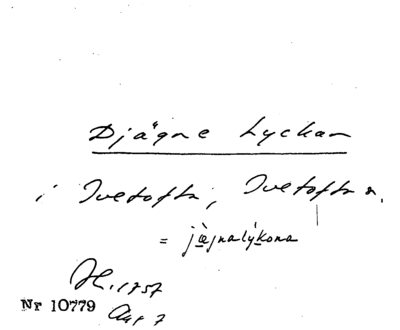 Djägne Lyckan
i Ivetofta, Ivetofta s.
= jæ̀jnalýkona
1757
Nr 10779